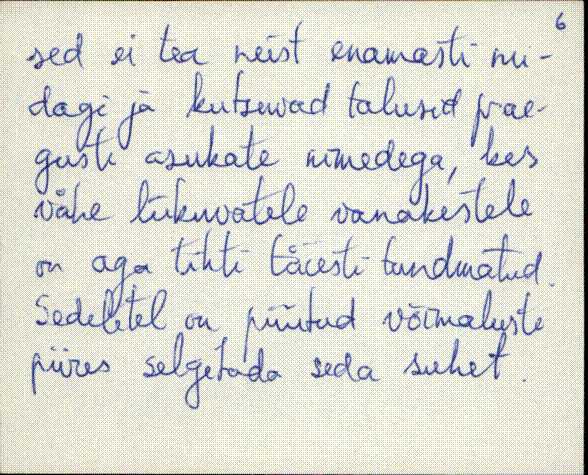 6
sed ei tea neist enamasti mi-
dagi ja kutsuvad talusid prae-
guste asukate nimedega, kes
vähe liikuvatele vanakestele
on aga tihti täiesti tundmatud.
Sedelitel on püütud võimaluste
piires selgitada seda suhet.